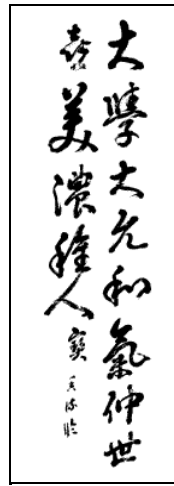 大學大允和氣仲世
喜美濃種人寶